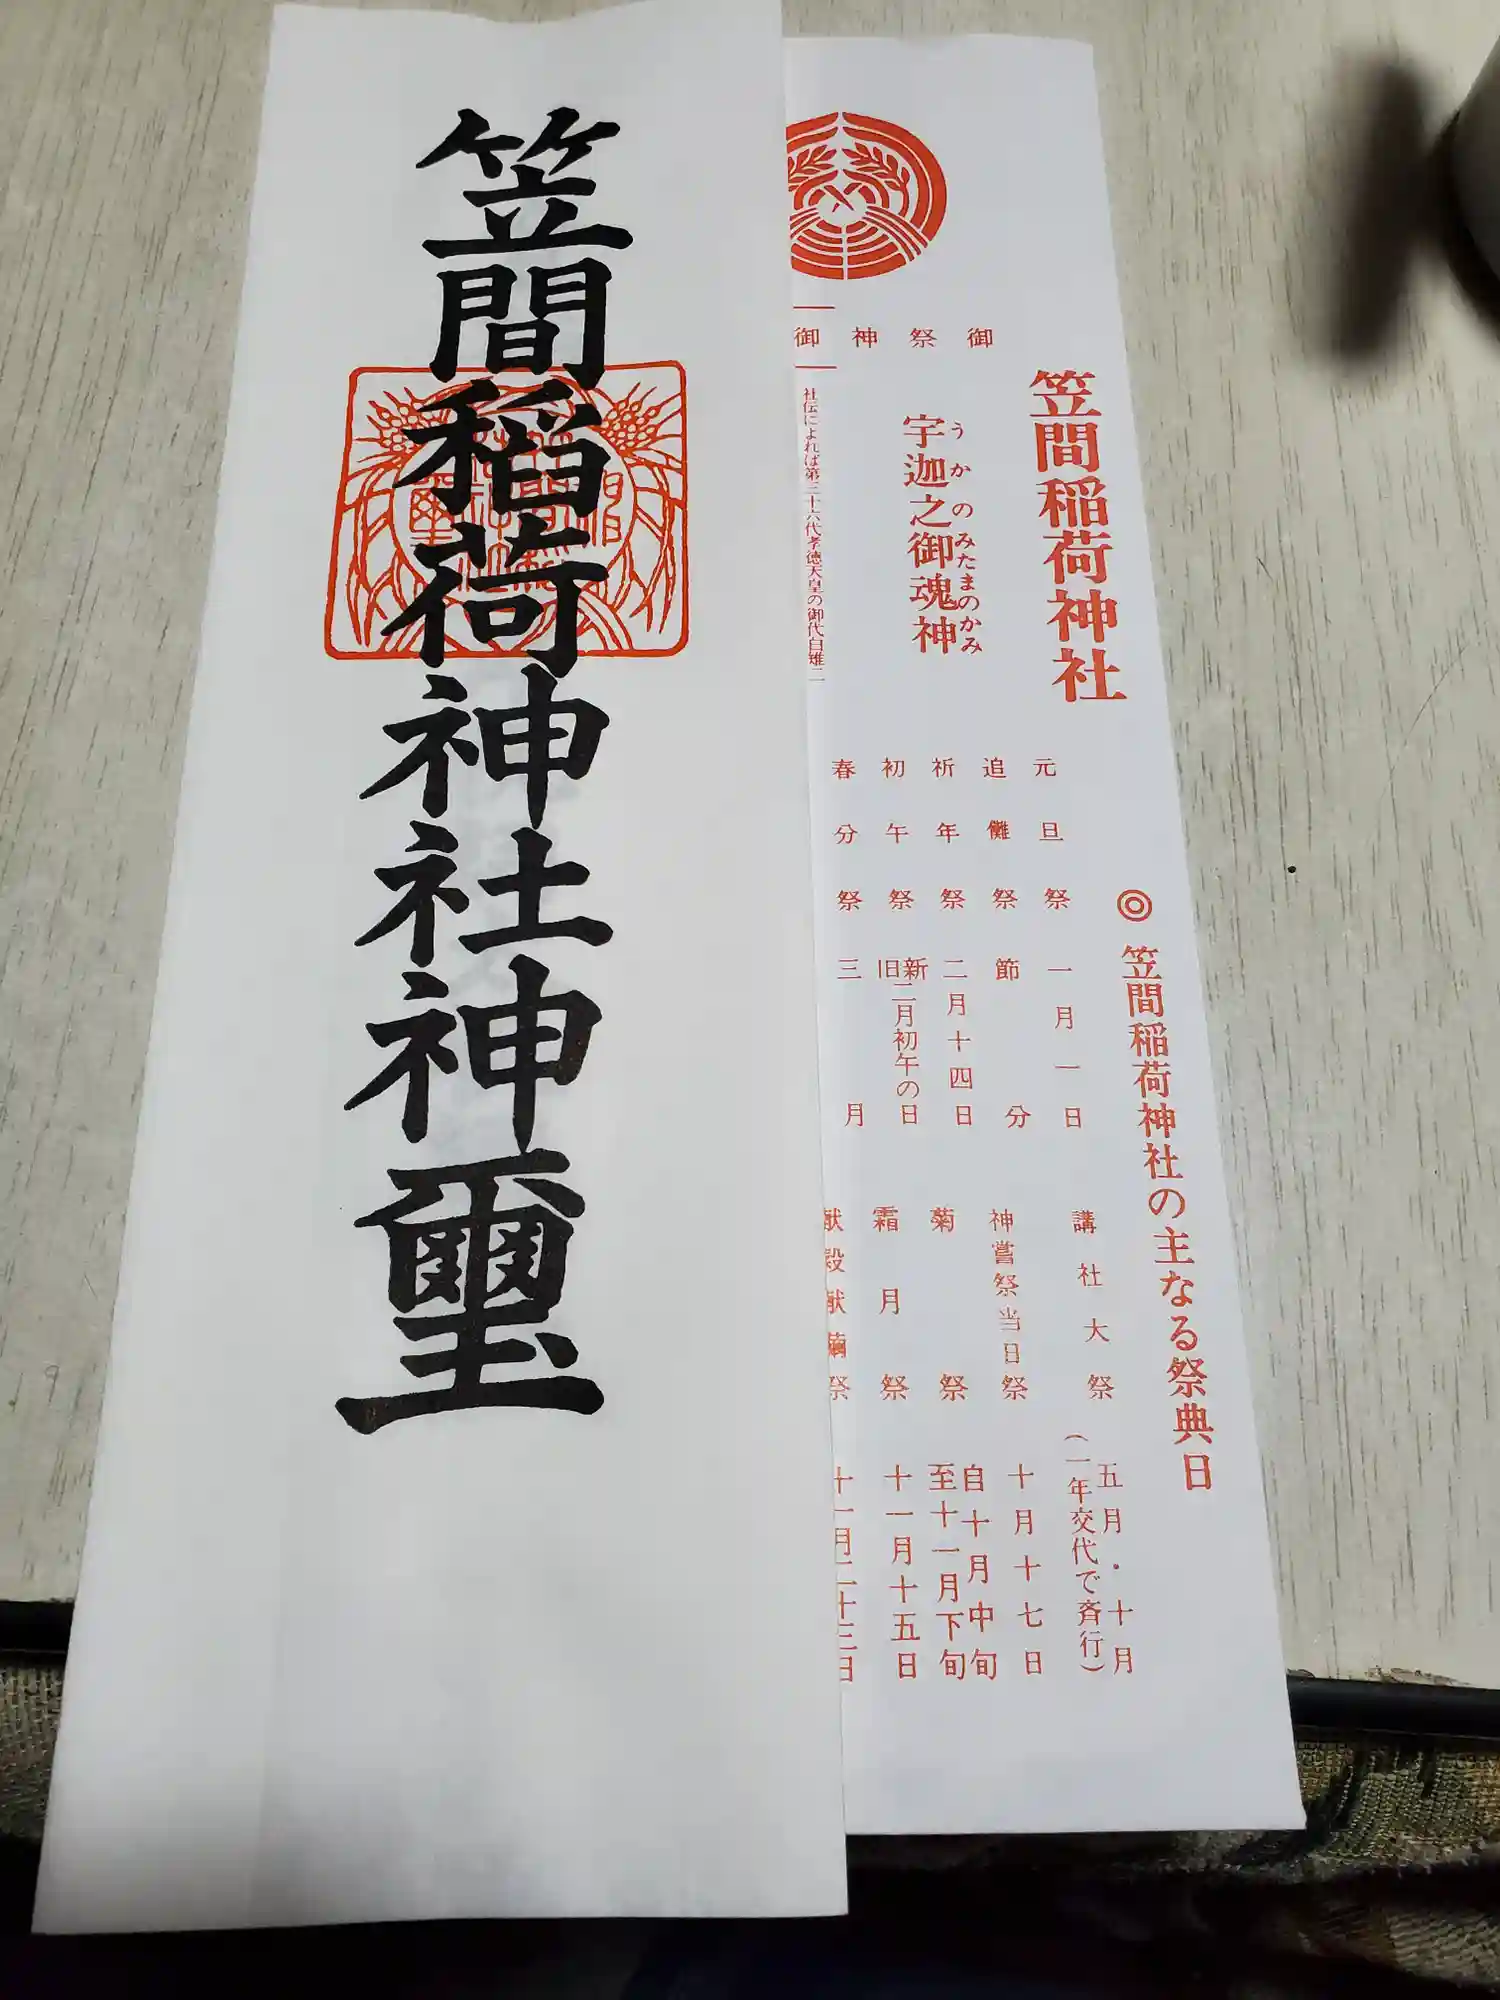 笠間稲荷神社神璽
笠間稲荷神社
御祭神
宇迦之御魂神
うかのみたまのかみ
御
社伝によれば第三十六代孝徳天皇の御代白雉二
◎笠間稲荷神社の主なる祭典日
元旦祭 一月一日
追儺祭 節分
祈年祭 二月十四日
初午祭 新旧二月初午の日
春分祭 三月
講社大祭 五月・十月
(一年交代で斉行)
神嘗祭当日祭 十月十七日
菊祭 自十月中旬
至十一月下旬
霜月祭 十一月十五日
献穀献繭祭 十一月二十三日